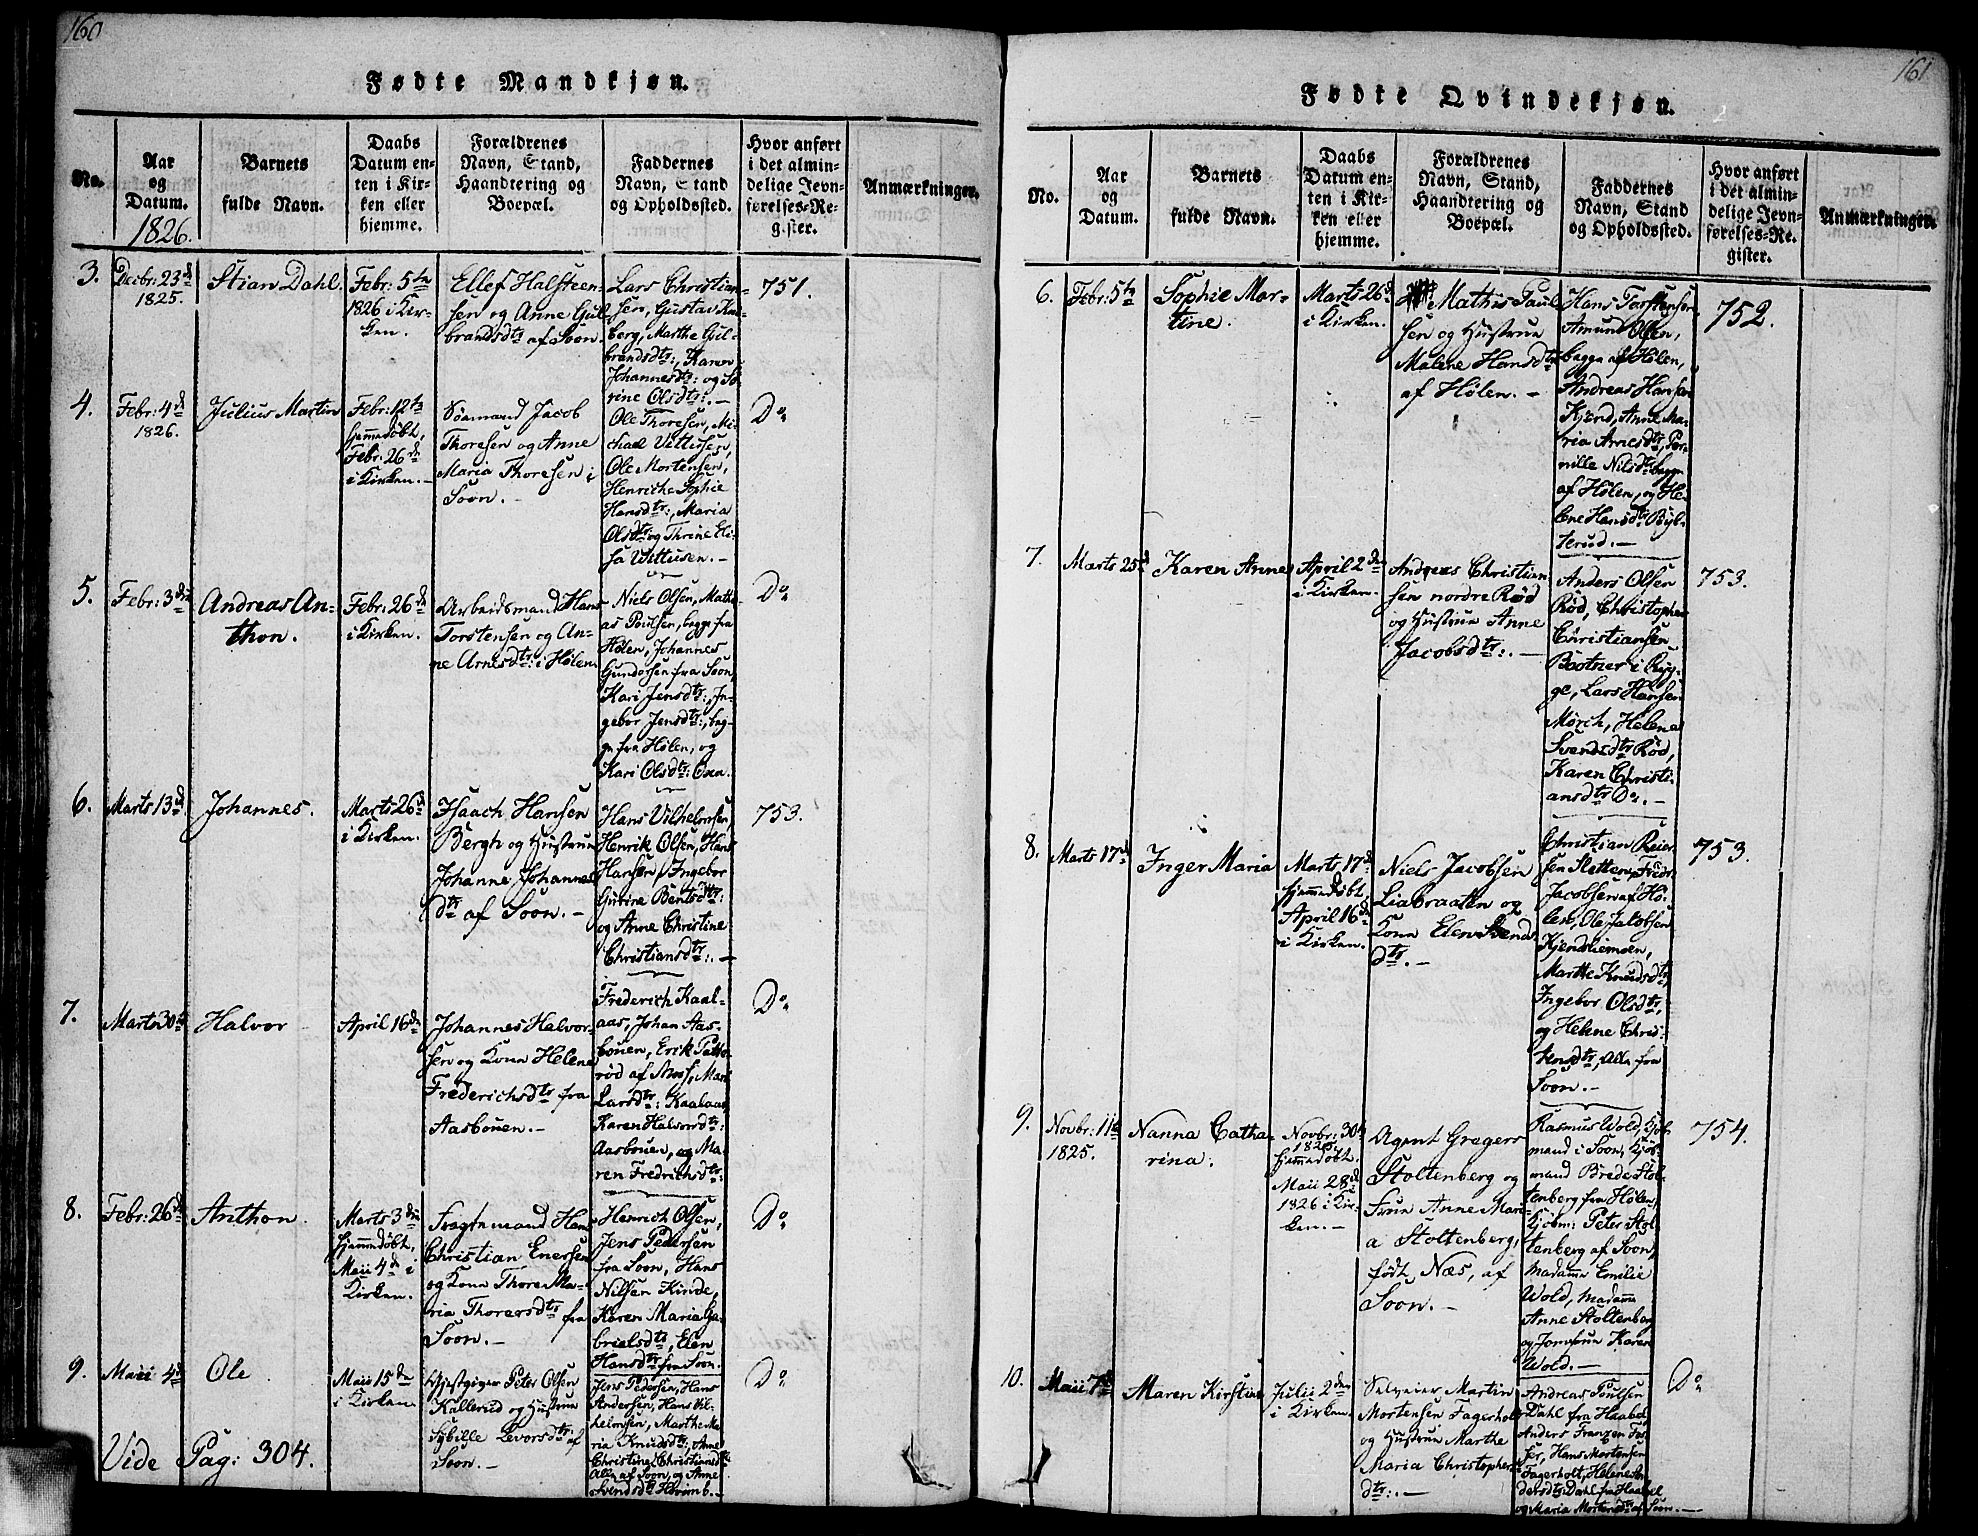 160
Fødte Mandkjøn.
No.
Aar
og
Datum.
1826.
Barnets
fulde Navn.
Daabs
Datum en-
ten i Kir-
ken eller
hjemme.
Forældrenes
Navn, Stand,
Haandtering og
Boepæl.
Faddernes
Navn, Stand
og Opholdssted.
Hvor anført
i det almin-
delige Jevn-
førelses-Re-
gister.
Anmærkninger.
3.
Decbr: 23d
1825.
Stian Dahl.
Febr: 5te
1826 i Kir-
ken.
Ellef Halsteen-
sen og Anne Gul-
brandsdtr af Soon.
Lars Christian-
sen, Gustav
berg, Marthe Gul-
brandsdtr:, Karen
Johannesdtr: og So-
rine Olsdtr:. -
751.
4.
Febr: 4d
1826.
Julius Martin
Febr: 12te
hjemmedøbt,
Febr: 26de
i Kirken. -
Sømand Jacob
Thoresen og Anne
Maria Thoresen i
Soon. -
Ole Thoresen, Mi-
chael
Ole Mortensen,
Henriche Sophie
Hansdtr:, Maria
Olsdtr: og Thrine Eli-
sa
Do
5.
Febr: 3die
Andreas An-
thon.
Febr: 26de
i Kirken.
Arbeidsmand Hans
Torstensen og An-
ne Arnesdtr: i Hølen
Niels Olsen, Mathi-
as Poulsen, begge fra
Hølen, Johannes
Gundersen fra Soon,
Kari Jensdtr:, In-
gebor Jensdtr:, beg-
ge fra Hølen, og
Kari Olsdtr: Osen.
Do
6.
Marts 13d
Johannes.
Marts 26d
i Kirken.
Isaach Hansen
Bergh og Hustrue
Johanne Johannes
dtr af Soon. -
Hans Vilhelmsen,
Henrik Olsen, Hans
Hansen, Ingebor
Gurine Bentsdtr:
og Anne Christine
Christiansdtr:. -
753.
7.
Marts 30te
Halvor
April 16de
Johannes Halvor-
sen og Kona Helene
Frederichsdtr fra
Aasbøuen. -
Frederich Kaal-
aas, Johan Aas-
bøuen, Erik
rød af Moss, Mari
Larsdtr: Kaalaas,
Karen Halvorsdtr:
Aasbøuen, og Ma-
ren Fredrichsdtr:
Do
8.
Febr: 26de
Anthon.
Marts 3die
hjemmedøbt,
Maii 4de i
Kirken.
Fragtemand Hans
Christian Enersen
og Kona Thore Ma-
ria Thorersdtr fra
Soon. -
Henrich Olsen,
Jens Pedersen
fra Soon, Hans
Nilsen Kinde,
Karen Maria Ga-
brielsdtr, Elen
Hansdtr fra Soon.
Do
9.
Maii 4d
Ole
Maii 15de
i Kirken.
Gjestgiver Peter Olsen
Kallerud og Hustrue
Sybille Levorsdtr: af
Soon. -
Jens Pedersen, Hans
Andersen, Hans Vil-
helmsen, Marthe Ma-
ria Knudsdtr:, Anne
Christine Christiansdtr
Alle af Soon, og Anne
Svendsdtr
Do
Vide Pag: 304.
161
Fødte Qvindekjøn.
No.
Aar
og
Datum.
Barnets
fulde Navn.
Daabs
Datum en-
ten i Kir-
ken eller
hjemme.
Forældrenes
Navn, Stand,
Haandtering og
Boepæl.
Faddernes
Navn, Stand
og Opholdssted.
Hvor anført
i det almin-
delige Jevn-
førelses-Re-
gister.
Anmærkninger.
6.
Febr: 5te
Sophie Mar-
tine.
Marts 26d
i Kirken.
Mathis Paul-
sen og Hustrue
Malene Hansdtr
af Hølen. -
Hans Torstensen
Amund Olsen,
begge af Hølen,
Andreas Hansen
Kjend, Anne Ma-
ria Arnesdtr, Per-
nille Nilsdtr begge
af Hølen, og He-
lene Hansdtr Byl-
terud. -
752.
7.
Marts 25d
Karen Anne
April 2den
i Kirken.
Andreas Christian-
sen nordre Rød
og Hustrue Anne
Jacobsdtr:. -
Anders Olsen
Rød, Christopher
Christiansen
Bootner i Ryg-
ge, Lars Hansen
Mørch, Helene
Svendsdtr Rød,
Karen Christi-
ansdtr Do. -
753.
8.
Marts 17de
Inger Maria
Marts 17d
hjemmedøbt
April 16de
i Kirken.
Niels Jacobsen
Liabraaten og
Kona Elen Svends
dtr. -
Christian Reier-
sen Sletten, Fredr:
Jacobsen af Hø-
len, Ole Jakobsen
Kjendsliemoen,
Marthe Knudsdtr,
Ingebor Olsdtr,
og Helene Chris-
tensdtr, Alle fra
Soon. -
753.
9.
Novbr: 11te
1825.
Nanna Catha-
rina.
Novbr: 30te
1825
hjemmedøbt.
Maii 28de
1826 i Kir-
ken. -
Agent Gregers
Stoltenberg og
Frue Anne Mari-
a Stoltenberg,
født Næs, af
Soon. -
Rasmus Wold, Kjøb-
mand i Soon, Kjøb-
mand Brede Stol-
tenberg fra Hølen,
Kjøbm: Peter Stol-
tenberg af Soon,
Madame Emilie
Wold, Madame
Anne Stoltenberg
og Jomfrue Karen
Wold. -
754.
10.
Maii 7de
Maren Kirstine
Julii 2den
i Kirken.
Selveier Martin
Mortensen Fagerholt
og Hustrue Marthe
Maria Christophers
dtr:. -
Andreas Poulsen
Dahl fra Haabøl,
Anders Franzen Fos-
ser, Hans Mortensen
Fagerholt, Helene An-
dersdtr Dahl fra Haabøl
og Maria Mortensdtr af Soon. -
Do